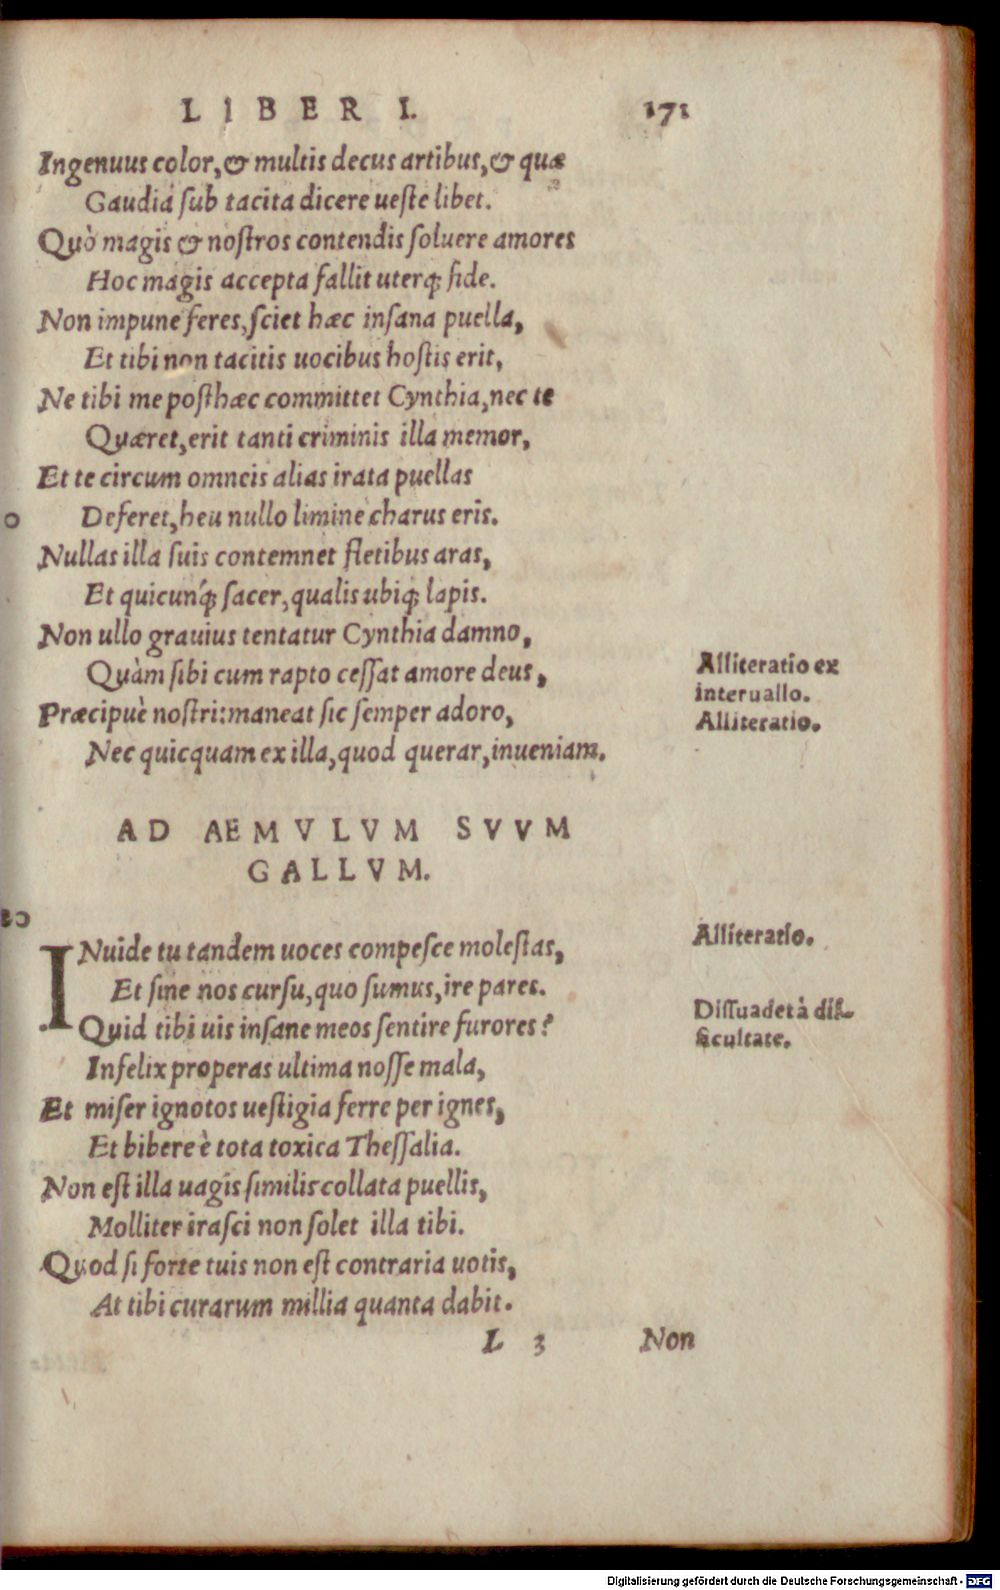 LIBER I. 171
Ingenuus color, & multis decus artibus, & quæ
Gaudia sub tacita dicere ueste libet.
Quò magis & nostros contendis soluere amores
Hoc magis accepta fallit uterq; fide.
Non impune feres, sciet hæc insana puella,
Et tibi non tacitis uocibus hostis erit,
Ne tibi me posthæc committet Cynthia, nec te
Quæret, erit tanti criminis illa memor,
Et te circum omneis alias irata puellas
Deferet, heu nullo limine charus eris.
Nullas illa suis contemnet fletibus aras,
Et quicunq́; sacer, qualis ubiq; lapis.
Non ullo grauius tentatur Cynthia damno,
Quàm sibi cum rapto cessat amore deus,
Præcipuè nostri: maneat sic semper adoro,
Nec quicquam ex illa, quod querar, inueniam.
Alliteratio ex
interuallo.
Alliteratio.
AD AEMVLVM SVVM
GALLVM.
INuide tu tandem uoces compesce molestas,
Et sine nos cursu, quo sumus, ire pares.
Quid tibi uis insane meos sentire furores?
Infelix properas ultima nosse mala,
Et miser ignotos uestigia ferre per ignes,
Et bibere è tota toxica Thessalia.
Non est illa uagis similis collata puellis,
Molliter irasci non solet illa tibi.
Quod si forte tuis non est contraria uotis,
At tibi curarum millia quanta dabit.
Alliteratio.
Dissuadet à dif-
ficultate.
L 3 Non
Digitalisierung gefördert durch die Deutsche Forschungsgemeinschaft - DFG